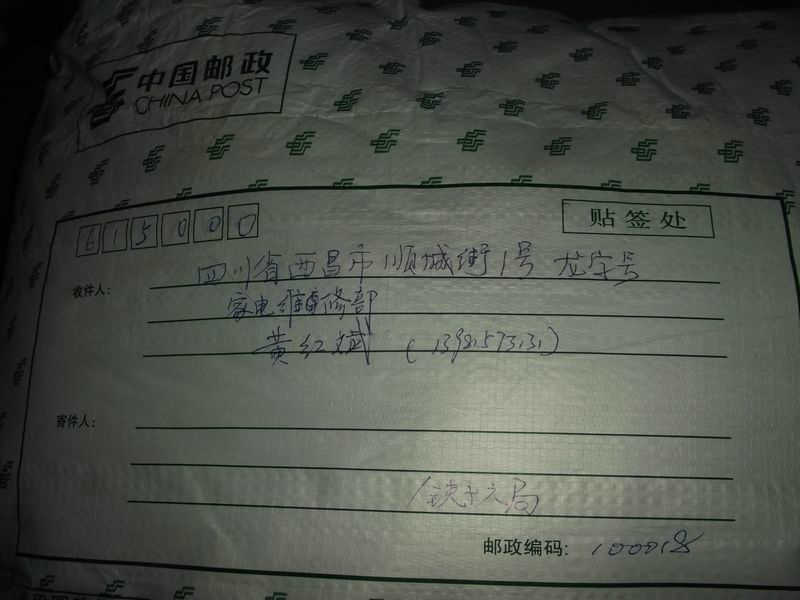 中国邮政
CHINA POST
615000
贴签处
收件人：
四川省西昌市顺城街1号 龙字号
家电维修部
黄红斌
寄件人：
局
邮政编码：
中国邮政